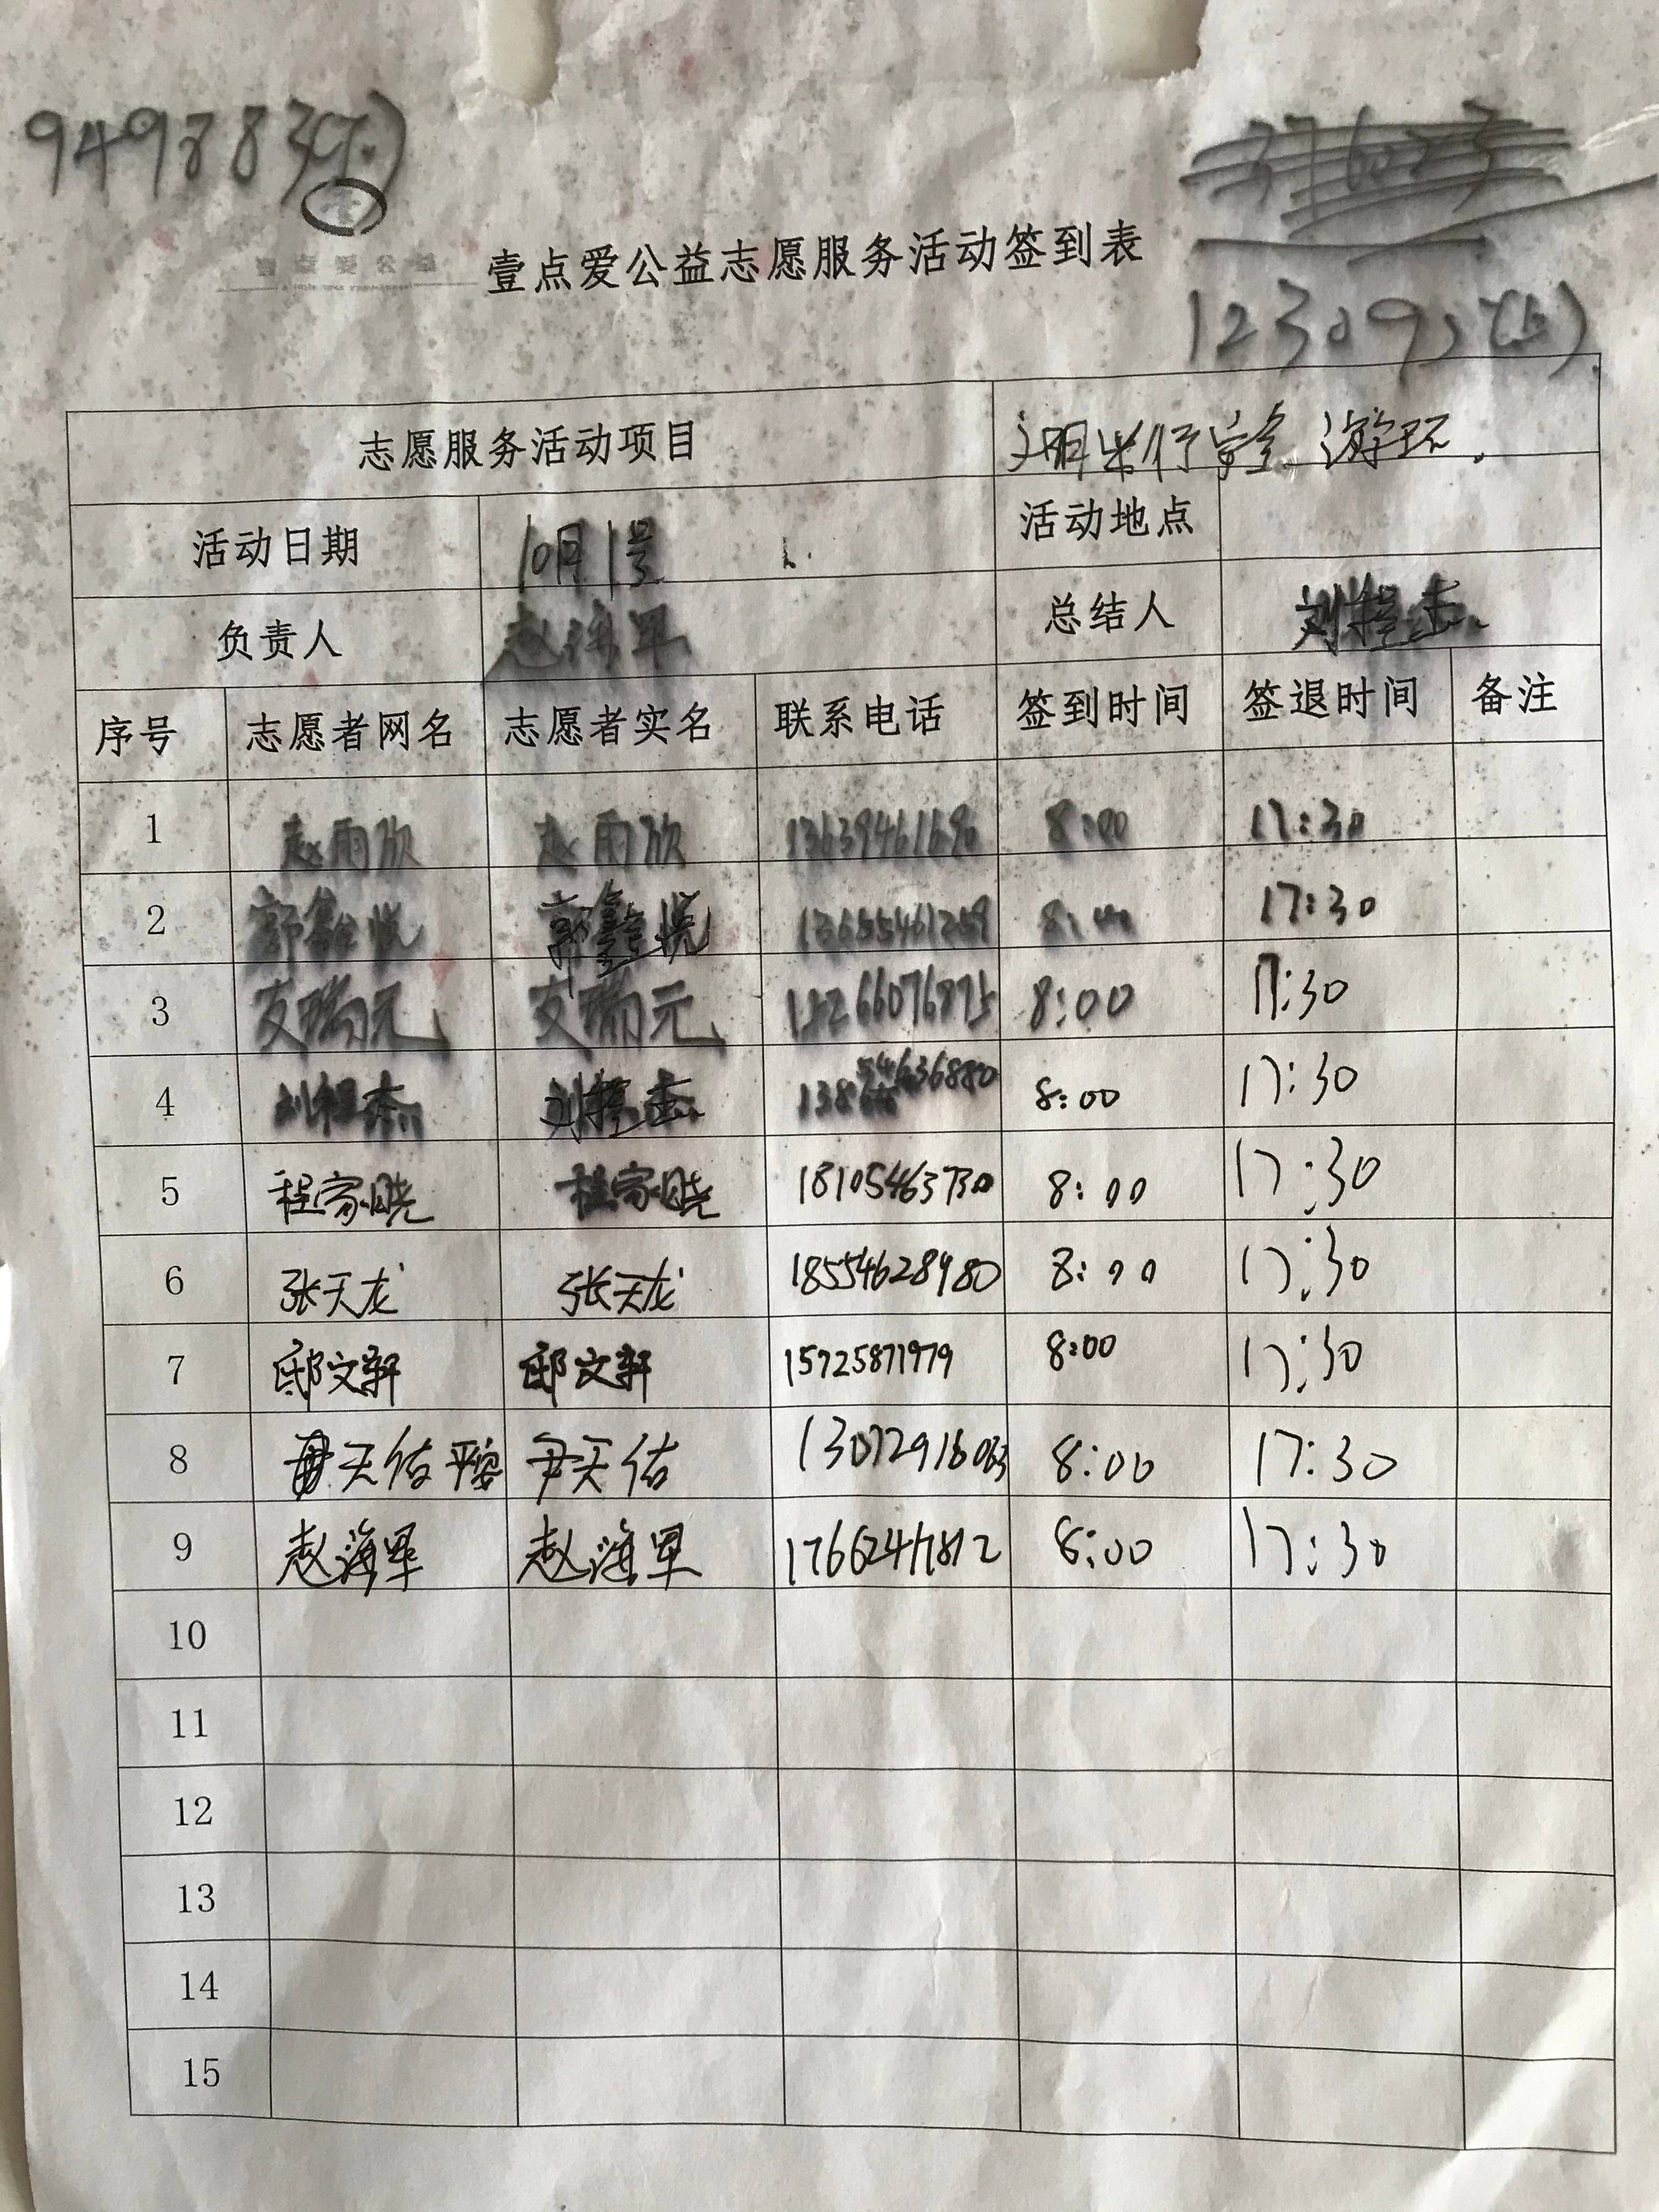 949883(下)
壹点爱公益
壹点爱公益志愿服务活动签到表
志愿服务活动项目 文明出行 安全 游环.
活动日期 10月1号 活动地点
负责人 赵海军 总结人
序号 志愿者网名 志愿者实名 联系电话 签到时间 签退时间 备注
1 赵雨欣 赵雨欣 13639461690 8:00 17:30
2 郭鑫悦 郭鑫悦 13655461259 8:00 17:30
3 支瑞元 支瑞元 15266076875 8:00 17:30
4 8:00 17:30
5 程家晓 程家晓 18105463730 8:00 17:30
6 张天龙 张天龙 18554628980 8:00 17:30
7 邸文轩 邸文轩 15725871979 8:00 17:30
8 天佑平安 尹天佑 13072916063 8:00 17:30
9 赵海军 赵海军 17662477812 8:00 17:30
10
11
12
13
14
15